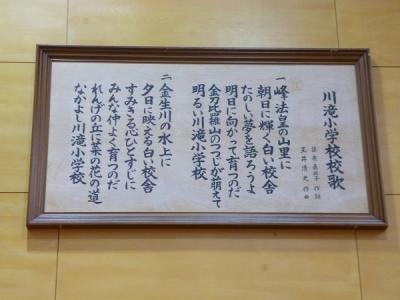 川滝小学校校歌
作詞
玉井清史 作曲
一 峰法皇の山里に
朝日に輝く白い校舎
たのしい夢を語ろうよ
明日に向かって育つのだ
金刀比羅山のつつじが萌えて
明るい川滝小学校
二 金生川の水上に
夕日に映える白い校舎
すみきる心ひとすじに
みんな仲よく育つのだ
れんげの丘に菜の花の道
なかよし川滝小学校